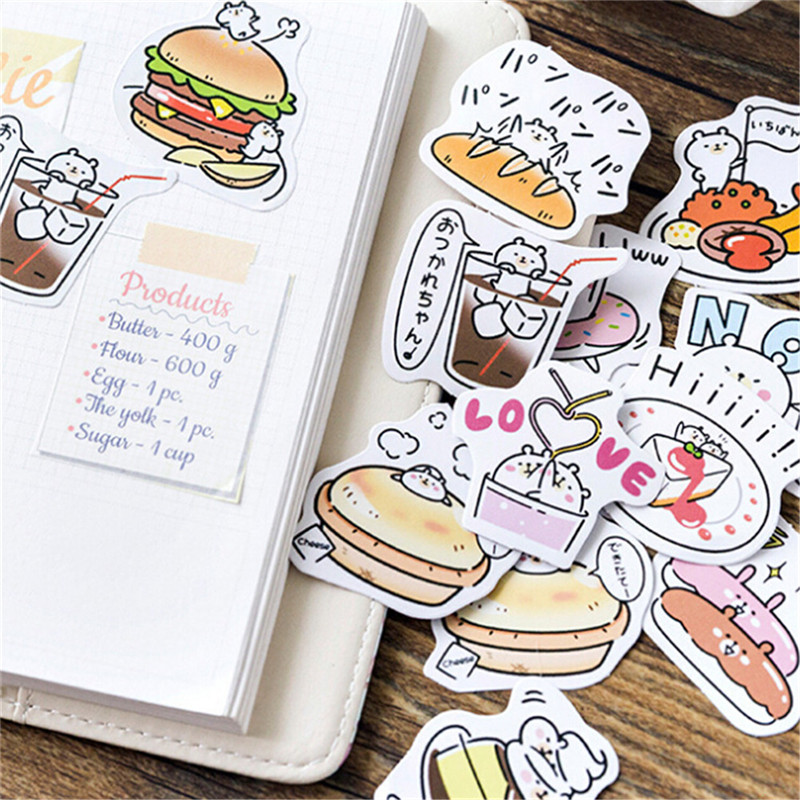 ie
お
Products
Butter - 400 g
Flour - 600 g
Egg - 1 pc.
The yolk - 1 pc.
Sugar - 1 cup
パン
パン
パン
パン
パン
いちばん
おつかれちゃん♪
ww
NO
Hiiiii!!
LOVE
Cheese
できたてー
Cheese